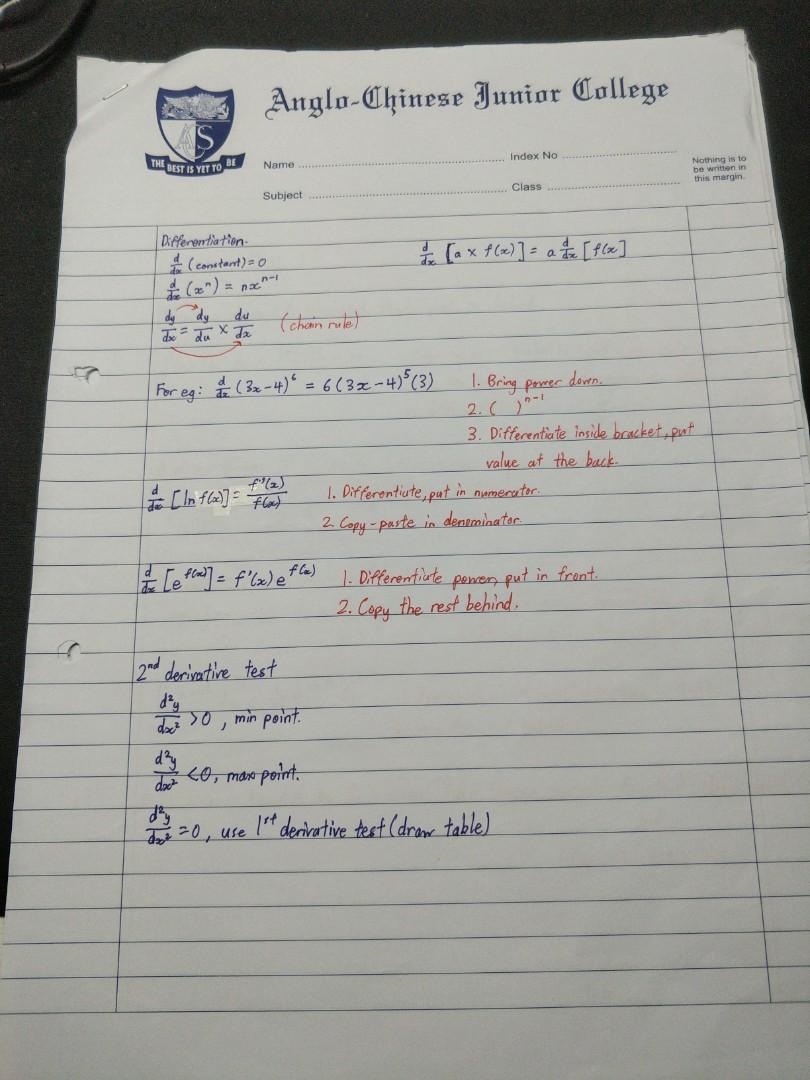 Anglo-Chinese Junior College
ACS
THE BEST IS YET TO BE
Name ........ Index No ........
Subject ........ Class ........
Nothing is to
be written in
this margin.
Differentiation.
d/dx (constant) = 0
d/dx [a x f(x)] = a d/dx [f(x]
d/dx (x^n) = nx^(n-1)
dy/dx = dy/du × du/dx (chain rule)
For eg: d/dx (3x-4)^6 = 6(3x-4)^5(3)
1. Bring power down.
2. ( )^(n-1)
3. Differentiate inside bracket, put
value at the back.
d/dx [ln f(x)] = f'(x)/f(x)
1. Differentiate, put in numerator.
2. Copy-paste in denominator.
d/dx [e^f(x)] = f'(x) e^f(x)
1. Differentiate power, put in front.
2. Copy the rest behind.
2nd derivative test
d²y/dx² >0, min point.
d²y/dx² <0, max point.
d²y/dx² =0, use 1st derivative test (draw table)